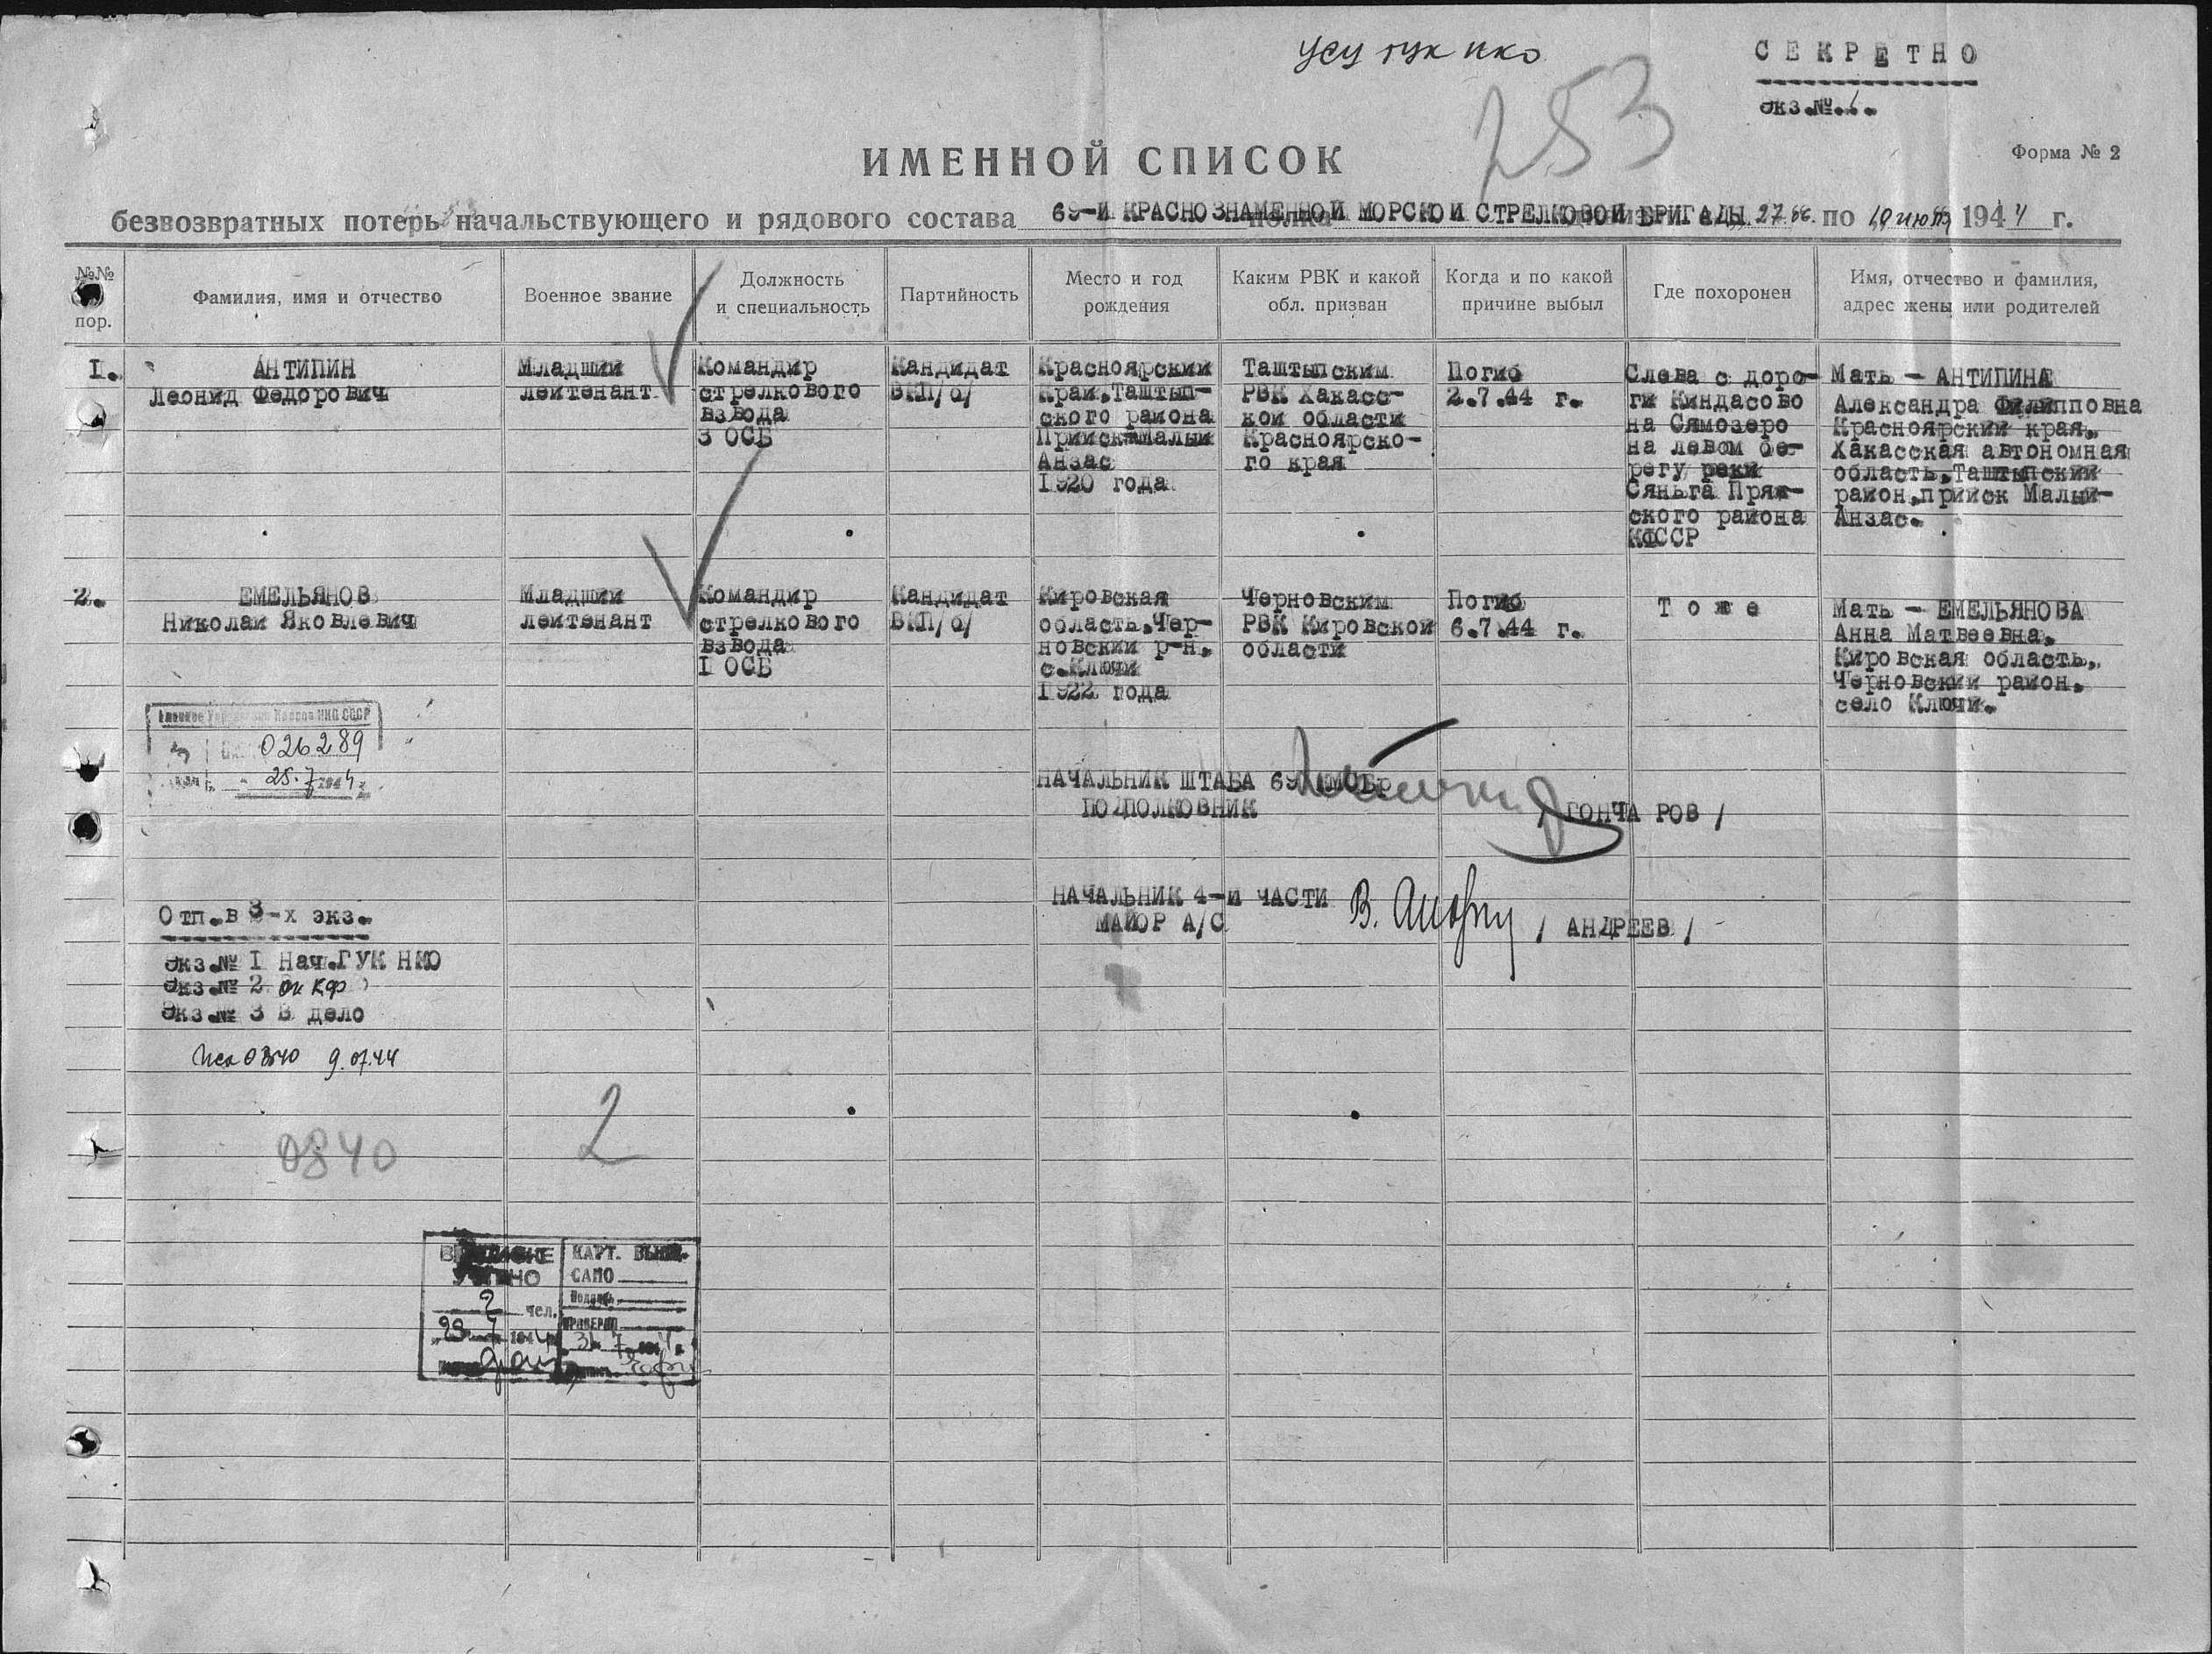 усу гук нко
СЕКРЕТНО
Экз.№ 1.
253
Форма № 2
ИМЕННОЙ СПИСОК
безвозвратных потерь начальствующего и рядового состава 69-й КРАСНОЗНАМЕННОЙ МОРСКОЙ СТРЕЛКОВОЙ БРИГАДЫ 27.06. по 10 июля 1944 г.
№№ пор.
Фамилия, имя и отчество
Военное звание
Должность и специальность
Партийность
Место и год рождения
Каким РВК и какой обл. призван
Когда и по какой причине выбыл
Где похоронен
Имя, отчество и фамилия, адрес жены или родителей
1.
АНТИПИН
Леонид Федорович
Младший
лейтенант
Командир
стрелкового
взвода
3 ОСБ
Кандидат
ВКП/б/
Красноярский
Край,Таштып-
ского района
Прииск Малый
Анзас
1920 года
Таштыпским
РВК Хакасс-
кой области
Красноярско-
го края
Погиб
2.7.44 г.
Слева с доро-
ги Киндасово
на Сямозеро
на левом бе-
регу реки
Сяньга Пряж-
ского района
КФССР
Мать - АНТИПИНА
Александра Филипповна
Красноярский края,
Хакасская автономная
область,Таштыпский
район,прииск Малый-
Анзас.
2.
ЕМЕЛЬЯНОВ
Николай Яковлевич
Младший
лейтенант
Командир
стрелкового
взвода
1 ОСБ
Кандидат
ВКП/б/
Кировская
область,Чер-
новский р-н,
с.Ключи
1922 года
Черновским
РВК Кировской
области
Погиб
6.7.44 г.
Тоже
Мать - ЕМЕЛЬЯНОВА
Анна Матвеевна,
Кировская область,
Черновский район,
село Ключи.
Главное Управление Кадров НКО СССР
026289
25.7 1944 г.
НАЧАЛЬНИК ШТАБА 69 КМСБр
ПОДПОЛКОВНИК
/ ГОНЧАРОВ /
НАЧАЛЬНИК 4-й ЧАСТИ
МАЙОР А/С
/ АНДРЕЕВ /
Отп.в 3-х экз.
Экз.№ 1 Нач.ГУК НКО
Экз.№ 2 ок КФ
Экз.№ 3 В дело
Исх 0840 9.07.44
0840
2
УЧТЕНО
2 чел.
КАРТ.
САМО